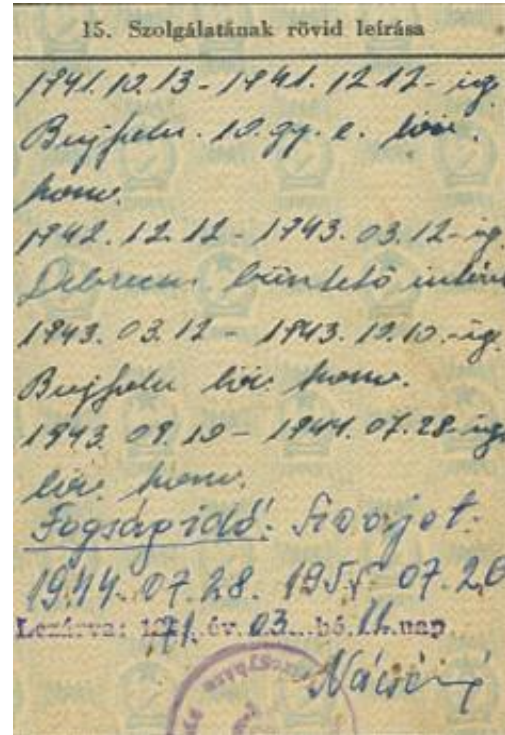 15. Szolgálatának rövid leírása
1941.10.13 - 1941.12.12-ig
Bujfalu. 10. gy. e. löv.
honv.
1942.12.12 - 1943.03.12-ig
Debrecen büntető intéz
1943.03.12 - 1943.12.10.-ig
Bujfalu löv. honv.
1943 09.10 - 1944.07.28-ig
löv. honv.
Fogságidő: Szovjet:
1944.07.28. 1955 07.20
Lezárva: 1971. év. 03...hó. 11. nap